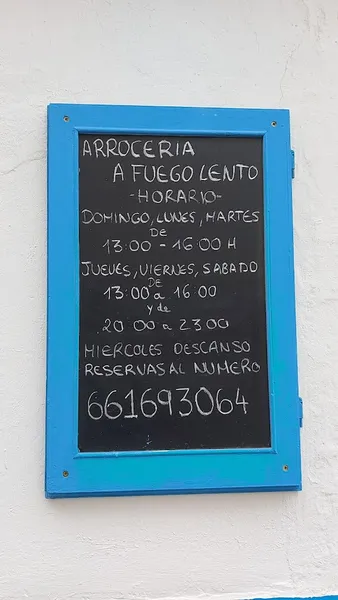 ARROCERIA
A FUEGO LENTO
-HORARIO-
DOMINGO, LUNES, MARTES
DE
13:00 - 16:00 H
JUEVES, VIERNES, SABADO
DE
13:00 a 16:00
y de
20:00 a 23:00
MIERCOLES DESCANSO
RESERVAS AL NUMERO
661693064